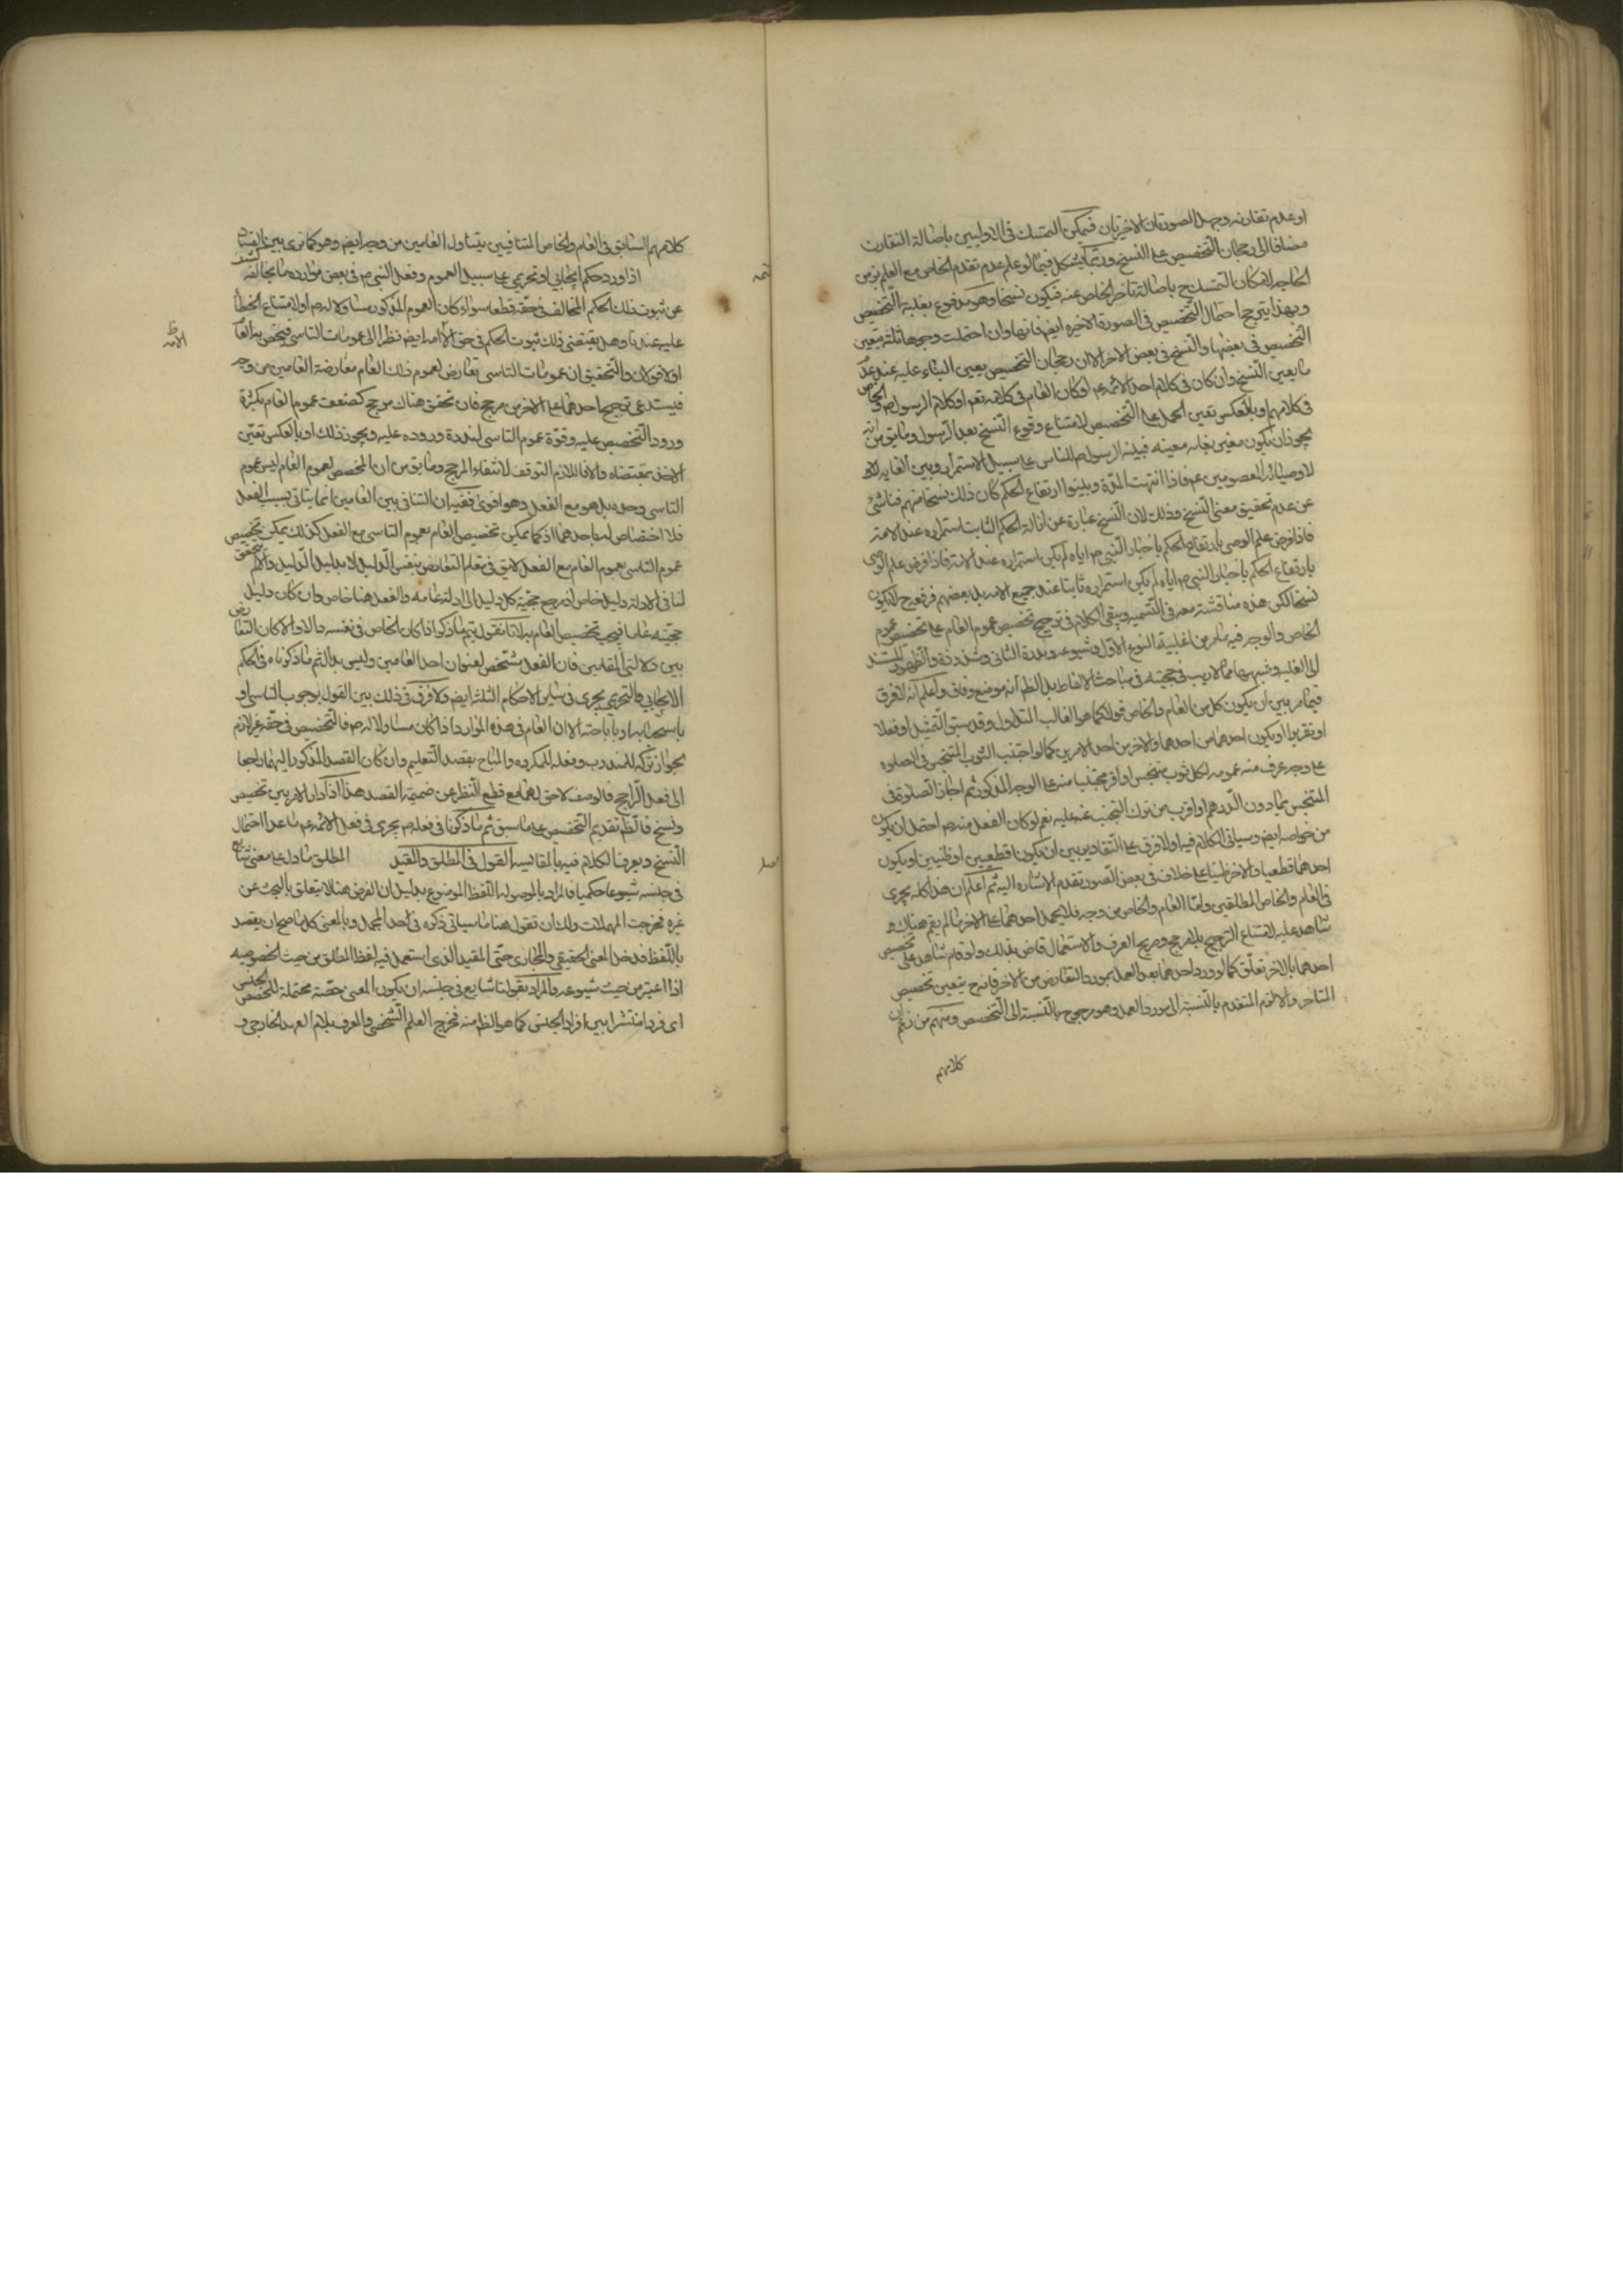 او عدم تقارنه وجهل الصورتان الاخيرتان فيمكن التمسك فى الاوليين باصالة التقارن
مضافا الى رجحان التخصيص على النسخ وربما يشكل فيما لو علم عدم تقدم الخاص مع العلم بزمن
الحاجة لامكان التمسك ح باصالة تاخر الخاص عنه فيكون نسخا وهو مدفوع بغلبة التخصيص
وبهذا يترجح احتمال التخصيص فى الصورة الاخيرة ايض فانها وان احتملت وجوها ثلثة يتعين
التخصيص فى بعضها والنسخ فى بعض الاخر الا ان رجحان التخصيص يعين البناء عليه عند عدم
ما يعين النسخ وان كان فى كلام احد الائمة ع او كان العام فى كلامه تعم او كلام الرسول ص والخاص
فى كلامهم او بالعكس تعين الحمل على التخصيص لامتناع وقوع النسخ بعد الرسول وما يق من انه
يجوز ان يكون مغيى بغاية معينه فبينه الرسول ص للناس على سبيل الاستمرار وبين الغاية
لاوصيائه المعصومين ع فاذا انتهت المدة وبينوا ارتفاع الحكم كان ذلك نسخا منهم فناشئ
عن عدم تحقيق معنى النسخ وذلك لان النسخ عبارة عن ازالة الحكم الثابت استمراره عند الامة
فاذا فرض علم الوصى بارتفاع الحكم باخبار النبى ص اياه لم يكن استمراره عند الامة فاذا فرض علم الوصى
بارتفاع الحكم باخبار النبى ص اياه لم يكن استمراره ثابتا عند جميع الامة بل بعضهم فرفعه ح لا يكون
نسخا لكن هذه مناقشة معه فى التسمية ويبقى الكلام فى ترجيح تخصيص عموم العام على تخصيص عموم
الخاص والوجه فيه ما مر من اغلبية النوع الاول وشيوعه وندرة الثانى وشذوذه والظهور المستند
الى الغلبة وشبهها مما لا ريب فى حجيته فى مباحث الالفاظ بل الظ انه موضع وفاق واعلم انه لا فرق
فيما مر بين ان يكون كل من العام والخاص قولا كما هو الغالب المتداول وقد سبق التمثيل او فعلا
او تقريرا او يكون احدهما من احدها والاخر من احد الامرين كما لو اجتنب الثوب المتنجس فى الصلوة
على وجه عرف منه عمومه لكل ثوب متنجس او اقر مجتنبا منه على الوجه المذكور ثم اجاز الصلوة فى
المتنجس بما دون الدرهم او اقر من ترك التجنب عنه عليه نعم لو كان الفعل منه ص احتمل ان يكون
من خواصه ايض وسياتى الكلام فيه ولا فرق على التقادير بين ان يكونا قطعيين او ظنيين او يكون
احدهما قطعيا والاخر ظنيا على خلاف فى بعض الصور تقدم الاشارة اليه ثم اعلم ان هذا كله يجرى
فى العام والخاص المطلقين واما العام والخاص من وجه فلا يحمل احدهما على الاخر ما لم يقم هناك
شاهد عليه لامتناع الترجيح بلا مرجح وصريح العرف والاستعمال قاض بذلك ولو قام شاهد على تخصيص
احدهما بالاخر تعلق كما لو ورد احدهما بعد العمل بمورد التعارض من الاخر فانه ح يتعين تخصيص
المتاخر والا لزم المتقدم بالنسبة الى مورد العمل وهو مرجوح بالنسبة الى التخصيص ومنهم من زعم ان
كلامهم
كلامهم السابق فى العام والخاص المتنافيين يتناول العامين من وجه ايض وهو كما ترى
اذا ورد حكم ايجابى او تحريمى على سبيل العموم وفعل النبى ص فى بعض موارده ما يخالفه كشف
عن ثبوت ذلك الحكم المخالف فى حقه قطعا سواء كان العموم المذكور متناولا له ص او لا لامتناع الخطأ
عليه عندنا وهل يقتضى ذلك ثبوت الحكم فى حق الامة ايض نظرا الى عمومات التاسى فيخص به العام
او لا قولان والتحقيق ان عمومات التاسى تعارض لعموم ذلك العام معارضة العامين من وجه
فيستدعى ترجيح احدهما على الاخر من مرجح فان تحقق هناك مرجح كضعف عموم العام بكثرة
ورود التخصيص عليه وقوة عموم التاسى لندرة وروده عليه ويجوز ذلك او بالعكس تعين
الاخذ بمقتضاه والا فاللازم التوقف لانتفاء المرجح وما يق من ان المخصص لعموم العام ليس عموم
التاسى وحده بل هو مع الفعل وهو اقوى ففيه ان التنافى بين العامين انما يتاتى بسبب الفعل
فلا اختصاص له باحدهما اذ كما يمكن تخصيص العام بعموم التاسى مع الفعل كذلك يمكن تخصيص
عموم التاسى بعموم العام مع الفعل لا يق فى مقام التعارض بنفس الدليل لا بدليل الدليل والا لم يتحقق
لنا فى الادلة دليل خاص اذ مرجع حجية كل دليل الى ادلة عامة والفعل هنا خاص وان كان دليل
حجيته عاما فيجب تخصيص العام به لانا نقول يتم ما ذكر اذا كان الخاص فى نفسه دالا والا كان التعارض
بين دلالتى المقامين فان الفعل مشخص لعنوان احد العامين وليس بدال ثم ما ذكرناه فى الحكم
الايجابى والتحريمى يجرى فى سائر الاحكام الثلثة ايض ولا فرق فى ذلك بين القول بوجوب التاسى او
باستحبابه او باباحته الا ان العام فى هذه الموارد اذا كان متناولا له ص فالتخصيص فى حقه غير لازم
لجواز تركه للمندوب وفعله للمكروه والمباح بقصد التعليم وان كان القصد المذكور اليهما راجعا
الى فعل الراجح فالوصف لاحق لهما مع قطع النظر عن ضميمة القصد هذا اذا دار الامر بين تخصيص
ونسخ فالظ تقديم التخصيص على ما سبق ثم ما ذكرنا فى فعله ص يجرى فى فعل الائمة ع ما عدا احتمال
النسخ ويعرف الكلام فيه بالمقايسة القول فى المطلق والمقيد المطلق ما دل على معنى شائع
فى جنسه شيوعا حكميا فالمراد بالموصولة اللفظ الموضوع بدليل ان الغرض هنا لا يتعلق بالبحث عن
غيره فخرجت المهملات ولك ان تقول هنا ما سياتى ذكره فى احد المجمل وبالمعنى كل ما صح ان يقصد
باللفظ فدخل المعنى الحقيقى والمجازى حتى المقيد الذى استعمل فيه لفظ المطلق من حيث الخصوصية
اذا اعتبر من حيث شيوعه والمراد بقولنا شايع فى جنسه ان يكون المعنى حصة محتملة للحصص الجنس
اى فردا منتشرا بين افراد الجنس كما هو الظ منه فخرج العلم الشخصى والمعرف بلام العهد الخارجى و
ظ
الامة